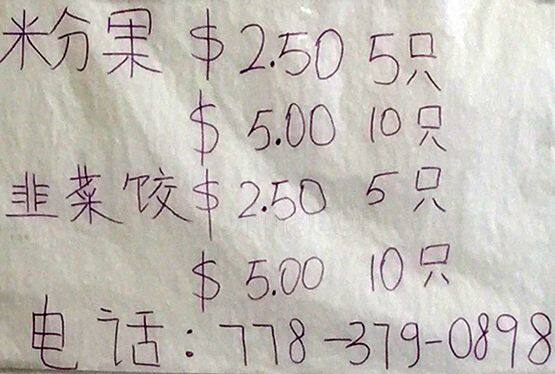 粉果 $2.50 5只
$5.00 10只
韭菜饺 $2.50 5只
$5.00 10只
电话：778-379-0898